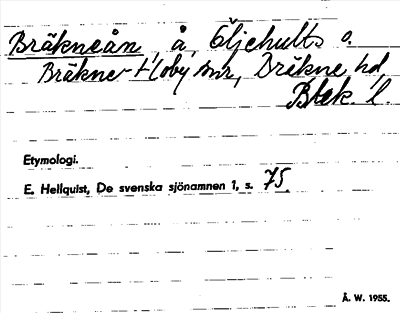 Bräkneån, å, Öljehults o.
Bräkne-Hoby snr, Bräkne hd,
Blek. l.
Etymologi.
E. Hellquist, De svenska sjönamnen 1, s. 75.
Å. W. 1955.